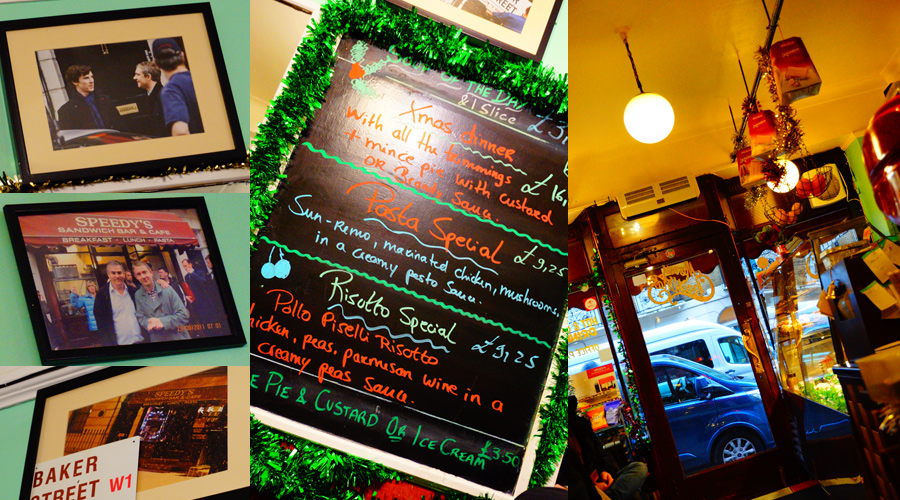 SPEEDY'S
SANDWICH BAR & CAFE
BREAKFAST · LUNCH · PASTA
2011 07 01
SPEEDY'S
BAKER
STREET W1
STREET
THE DAY
& 1 Slice
Xmas dinner
with all the trimmings
+ mince pie with custard £16,
OR Brandy Sauce.
Pasta Special
£9,25
Sun-Remo, marinated chicken, mushrooms,
in a creamy pesto sauce.
Risotto Special
£9,25
Pollo Piselli Risotto
hicken, peas, parmesan wine in a
creamy peas sauce.
E PIE & CUSTARD OR ICE CREAM £3.50